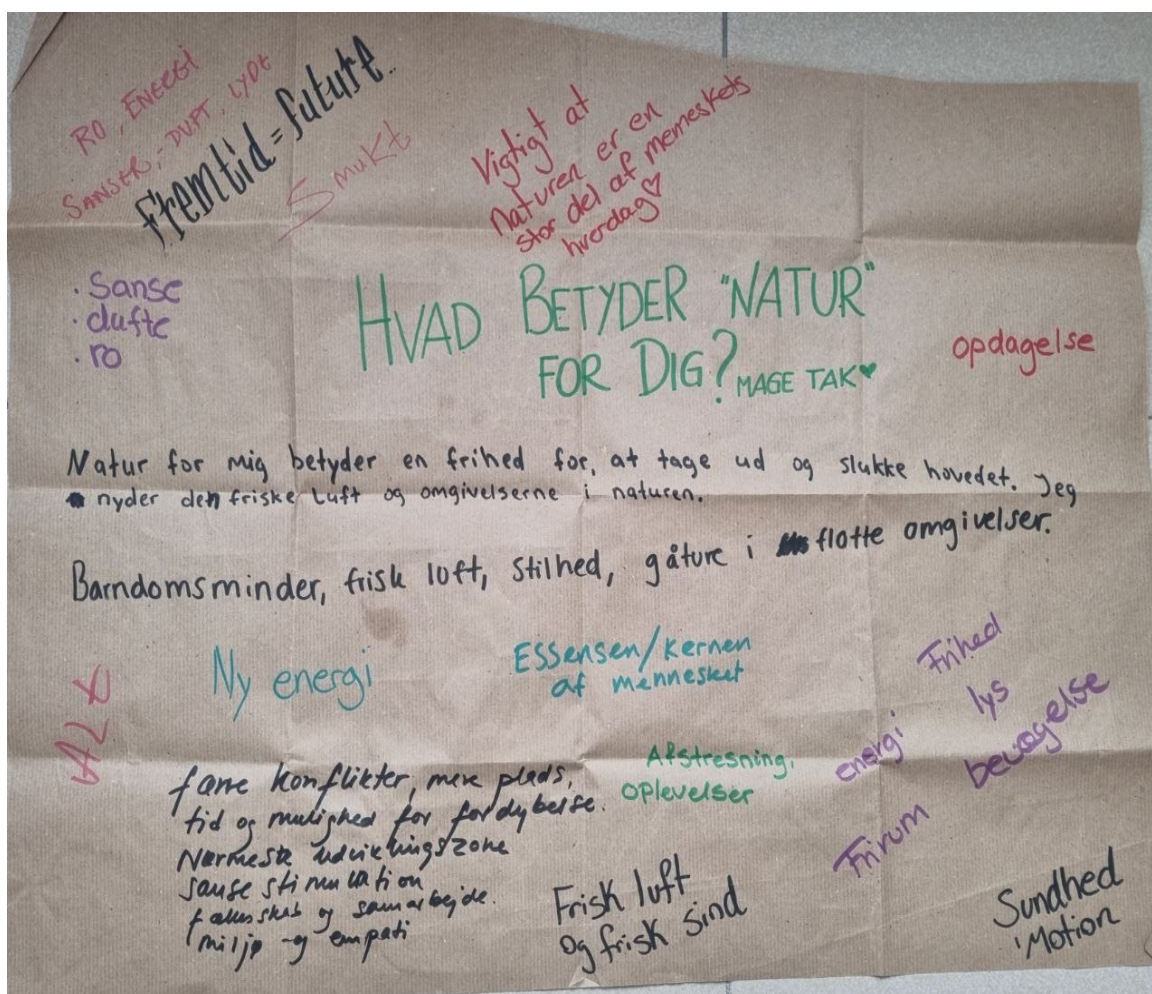 RO, ENERGI
SANSER, - DUFT, LYDE
Fremtid = future..
Smukt
Vigtigt at
Naturen er en
stor del af memeskets
hverdag♡
· Sanse
· dufte
· ro
HVAD BETYDER "NATUR"
FOR DIG? MAGE TAK♥
opdagelse
Natur for mig betyder en frihed for, at tage ud og slukke hovedet. Jeg
nyder den friske luft og omgivelserne i naturen.
Barndomsminder, frisk luft, stilhed, gåture i flotte omgivelser.
Ny energi
Essensen/kernen
af mennesket
ALT
Afstresning,
oplevelser
Frihed
lys
energi
bevægelse
Frirum
færre konflikter, mere plads,
tid og mulighed for fordybelse.
Nærmeste udviklingszone
sanse stimulation
fællesskab og samarbejde.
miljø og empati
Frisk luft
og frisk sind
Sundhed
Motion